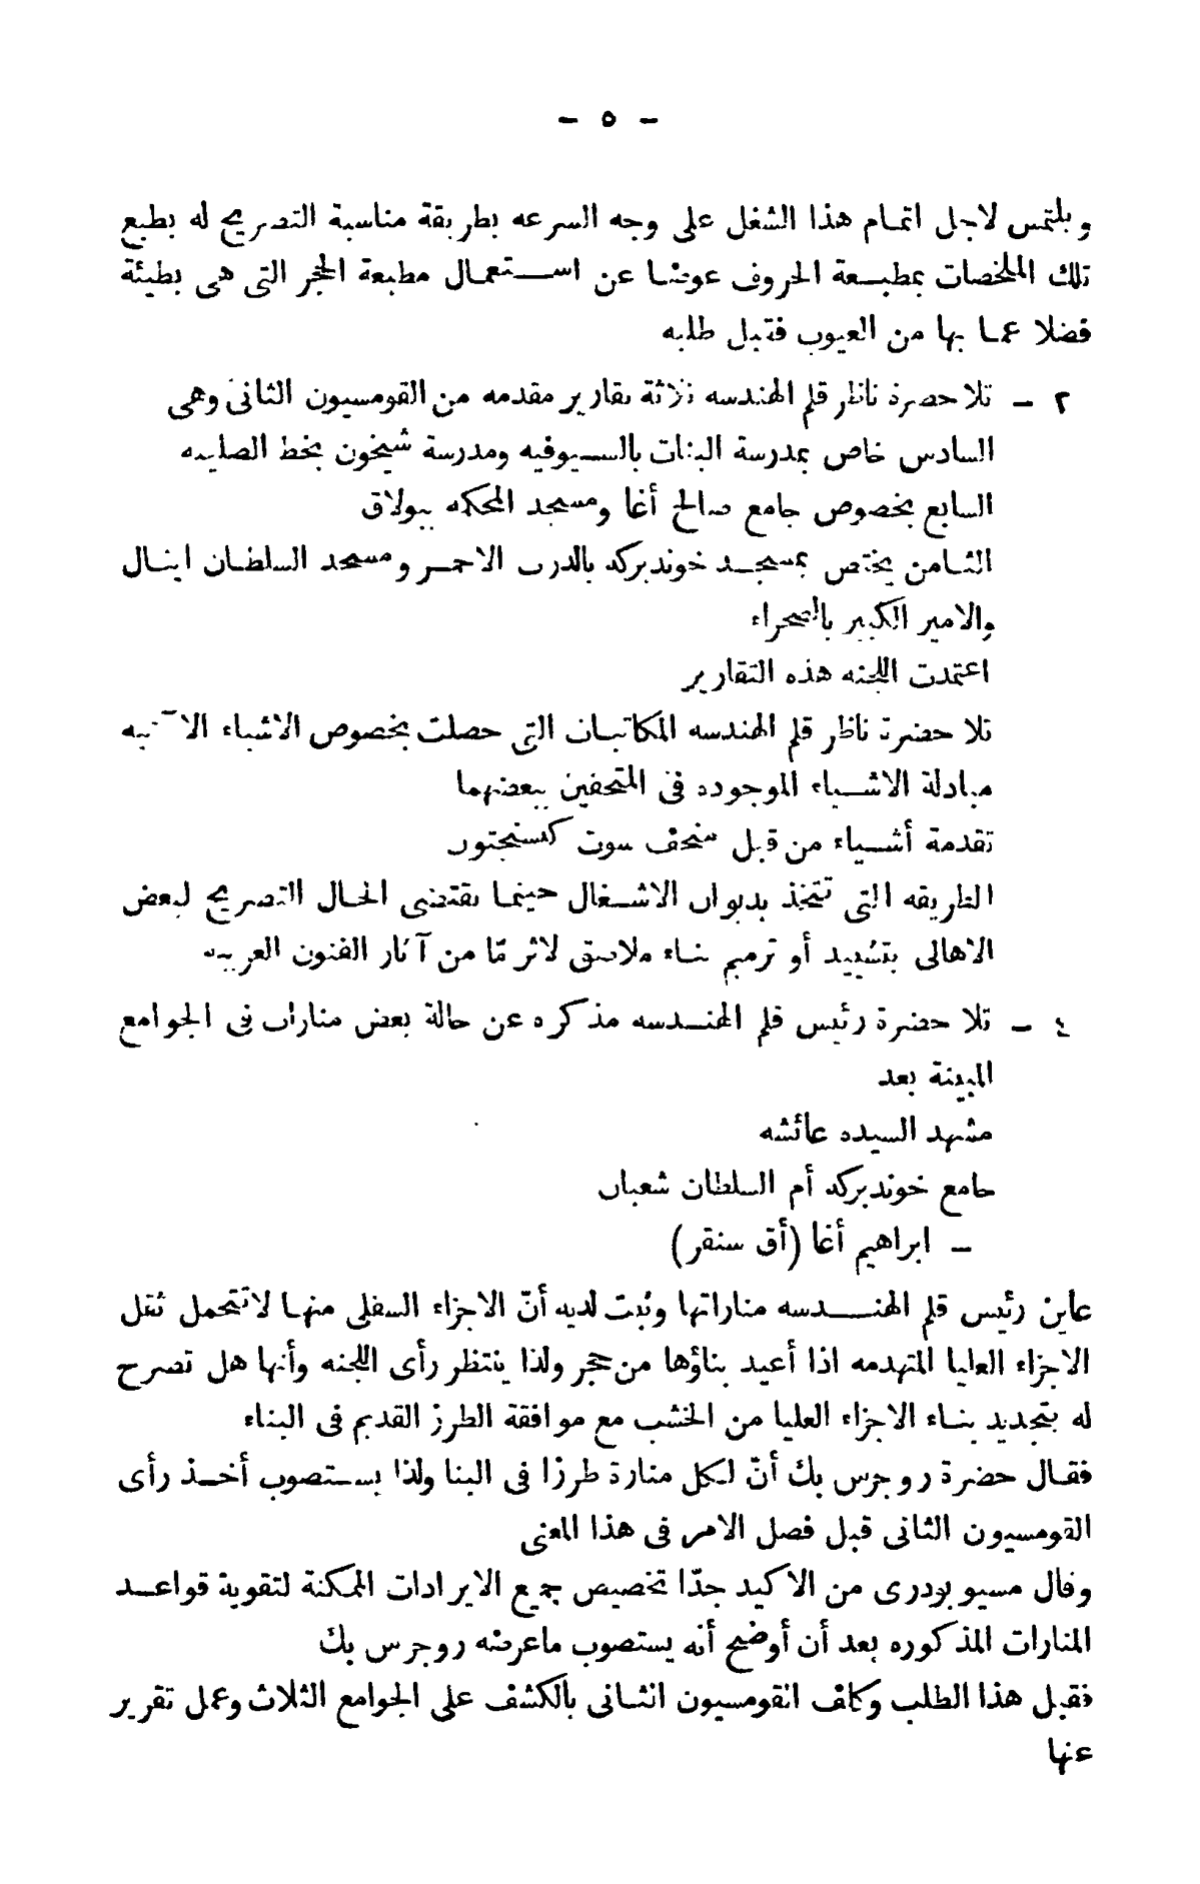 - ٥ -
ويلتمس لاجل اتمام هذا الشغل على وجه السرعه بطريقة مناسبة التصريح له بطبع
تلك الملخصات بمطبعة الحروف عوضا عن استعمال مطبعة الحجر التى هى بطيئة
فضلا عما بها من العيوب فقبل طلبه
٢ - تلا حضرة ناظر قلم الهندسه ثلاثة تقارير مقدمه من القومسيون الثانى وهى
السادس خاص بمدرسة البنات بالسيوفيه ومدرسة شيخون بخط الصليبه
السابع بخصوص جامع صالح أغا ومسجد المحكمه ببولاق
الثامن يختص بمسجد خوندبركه بالدرب الاحمر ومسجد السلطان اينال
والامير الكبير بالصحراء
اعتمدت اللجنه هذه التقارير
تلا حضرة ناظر قلم الهندسه المكاتبات التى حصلت بخصوص الاشياء الآتيه
مبادلة الاشياء الموجوده فى المتحفين ببعضهما
تقدمة أشياء من قبل متحف سوت كنسنجتون
الطريقه التى تتخذ بديوان الاشغال حينما يقتضى الحال التصريح لبعض
الاهالى بتشييد أو ترميم بناء ملاصق لاثر مّا من آثار الفنون العربيه
٤ - تلا حضرة رئيس قلم الهندسه مذكره عن حالة بعض منارات فى الجوامع
المبينة بعد
مشهد السيده عائشه
جامع خوندبركه أم السلطان شعبان
- ابراهيم أغا (أق سنقر)
عاين رئيس قلم الهندسه مناراتها وثبت لديه أنّ الاجزاء السفلى منها لا تتحمل ثقل
الاجزاء العليا المتهدمه اذا أعيد بناؤها من حجر ولذا ينتظر رأى اللجنه وأنها هل تصرح
له بتجديد بناء الاجزاء العليا من الخشب مع موافقة الطرز القديم فى البناء
فقال حضرة روجرس بك أنّ لكل منارة طرزا فى البنا ولذا يستصوب أخذ رأى
القومسيون الثانى قبل فصل الامر فى هذا المعنى
وقال مسيو بودرى من الاكيد جدّا تخصيص جميع الايرادات الممكنة لتقوية قواعد
المنارات المذكوره بعد أن أوضح أنه يستصوب ماعرضه روجرس بك
فقبل هذا الطلب وكلف القومسيون الثانى بالكشف على الجوامع الثلاث وعمل تقرير
عنها